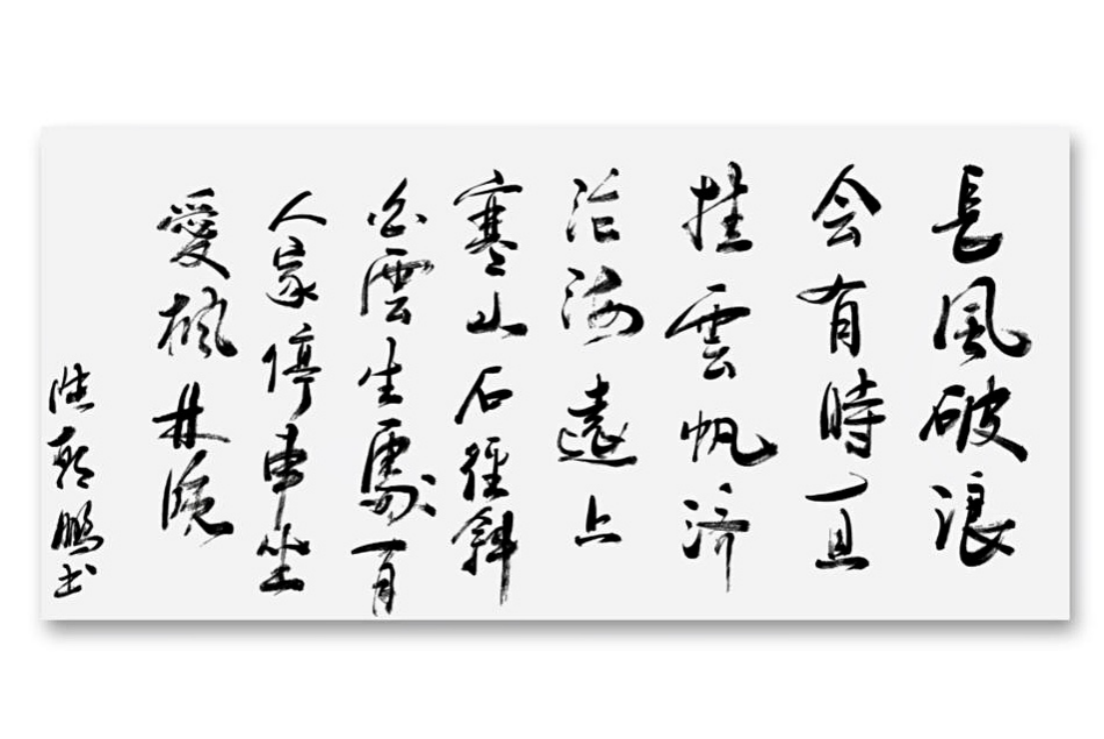 長風破浪
会有時直
挂雲帆济
沧海遠上
寒山石徑斜
白雲生處有
人家停車坐
愛楓林晚
鵬书